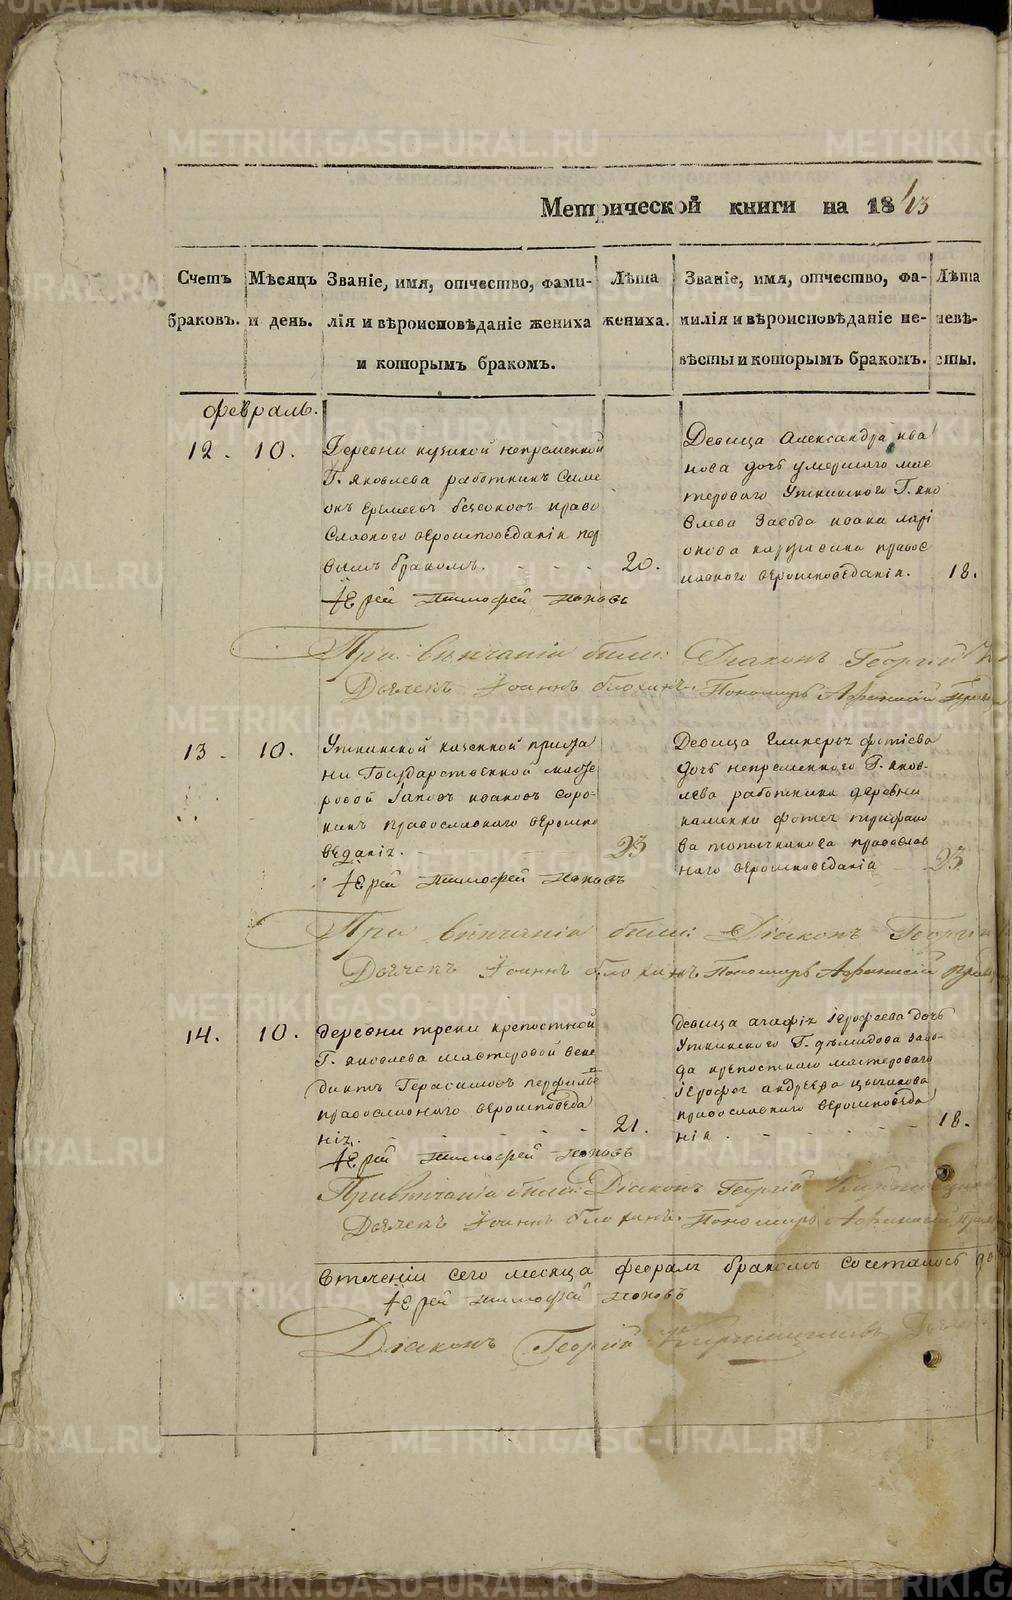 Метрической книги на 1843
Счетъ браковъ.
Мѣсяцъ и день.
Званіе, имя, отчество, фами-
лія и вѣроисповѣданіе жениха
и которымъ бракомъ.
Лѣта
жениха.
Званіе, имя, отчество, фа-
милія и вѣроисповѣданіе не-
вѣсты и которымъ бракомъ.
Лѣта
невѣ-
сты.
февраль.
12. 10.
Деревни кузиной непременной
Г. Яковлева работникъ Симе
онъ Еремеевъ право
славного вероисповеданія пер
вымъ бракомъ. 20.
Іерей Тимофей Поповъ
Девица Александра Ива
нова дочь умершаго мас
тероваго Уткинского Г. Яко
влева завода Ивана Ларі
онова правос
лавного вероисповеданія. 18.
При венчаніи были: Діаконъ Георгій
Дьячекъ Іоаннъ Блохинъ. Пономарь Афанасий
13. 10.
Уткинской казенной приста
ни Государственной масте
ровой Іаковъ Ивановъ Соро-
кинъ православнаго вероиспо
веданія. 23
Іерей Тимофей Поповъ
Девица Гликерья Фотіева
дочь непременного Г. Яков-
лева работника деревни
каменки Фотея Трифано
ва православ
наго вероисповеданія 23
При венчаніи были: Діаконъ Георгій
Дьячекъ Іоаннъ Блохинъ Пономарь Афанасій
14. 10.
Деревни трески крепостной
Г. Яковлева мастеровой Вене
диктъ Герасимовъ Перфилье
православного вероисповеда
нія. 21.
Іерей Тимофей Поповъ
Девица Агафія Іерофеева дочь
Уткинского Г. Демидова заво-
да крепостного мастероваго
Іерофея Андреева Цыганова
православного вероисповеда
нія. 18.
При венчаніи были: Діаконъ Георгій
Дьячекъ Іоаннъ Блохинъ. Пономарь Афанасій
Втеченіи сего месяца февраля бракомъ сочеталось
Іерей Тимофей Поповъ
Діаконъ Георгій
METRIKI.GASO-URAL.RU